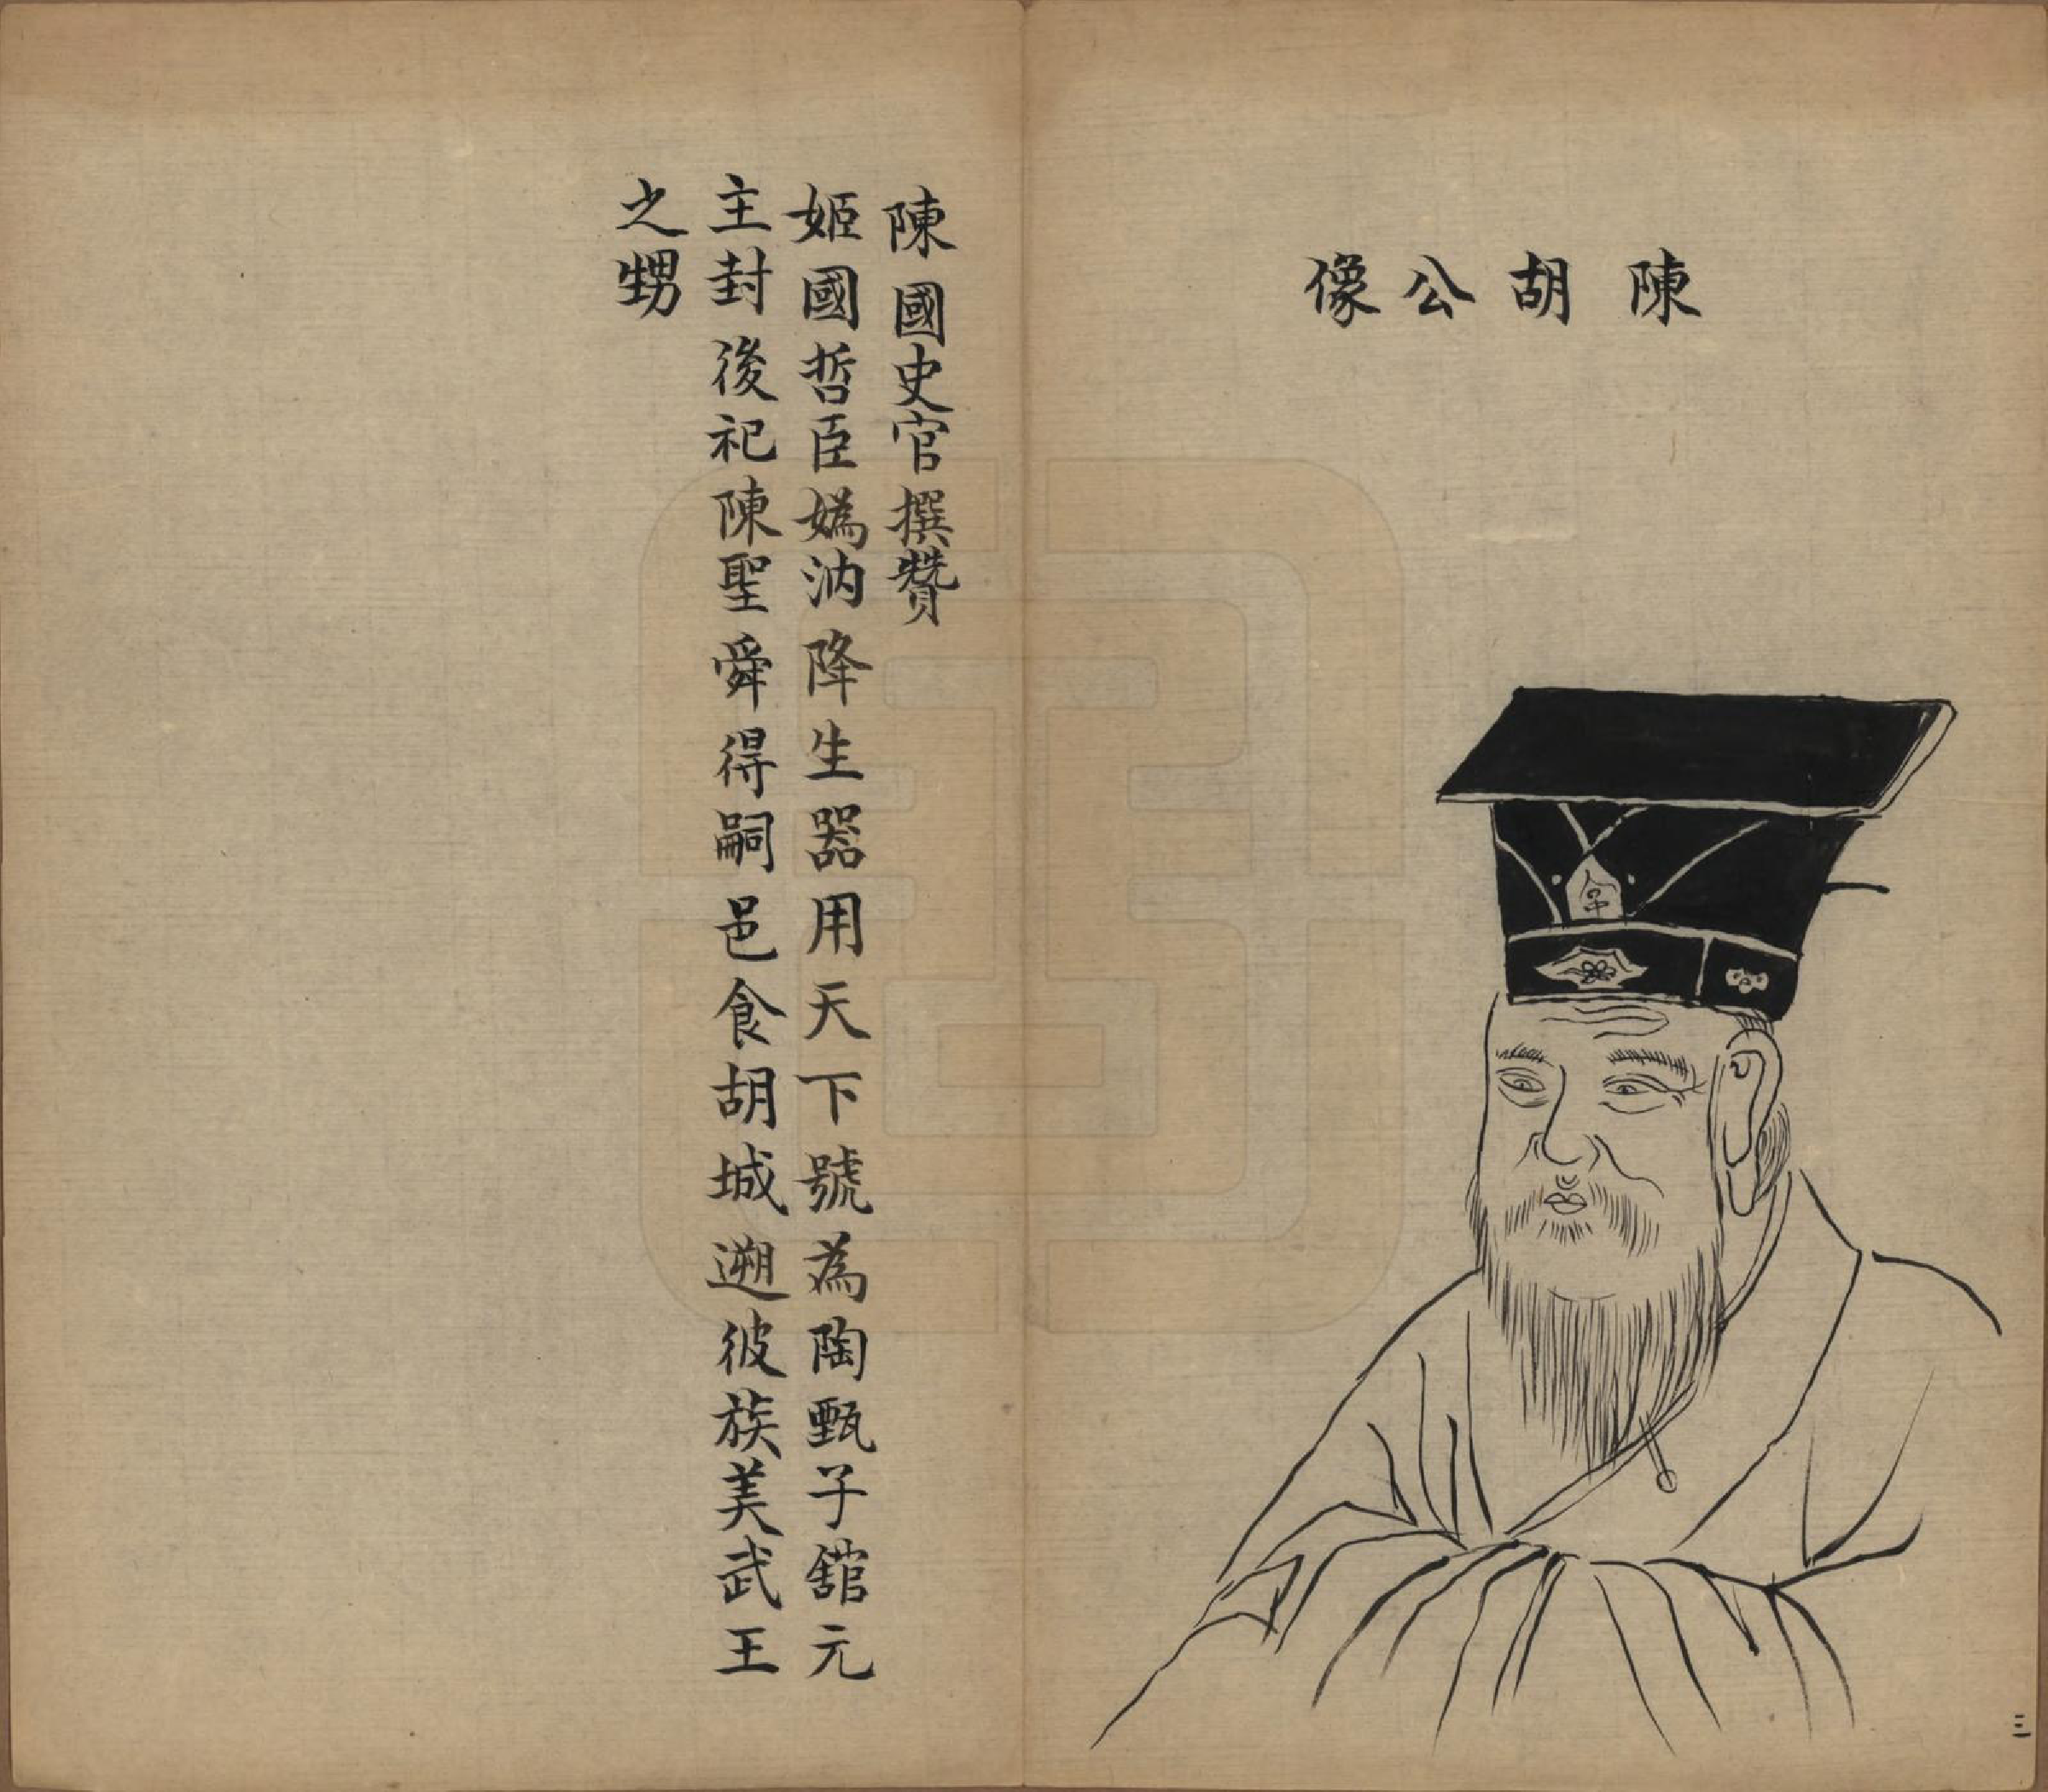 陳胡公像
三
陳國史官撰贊
姬國哲臣嬀汭降生器用天下號為陶甄子舘元
主封後祀陳聖舜得嗣邑食胡城遡彼族美武王
之甥